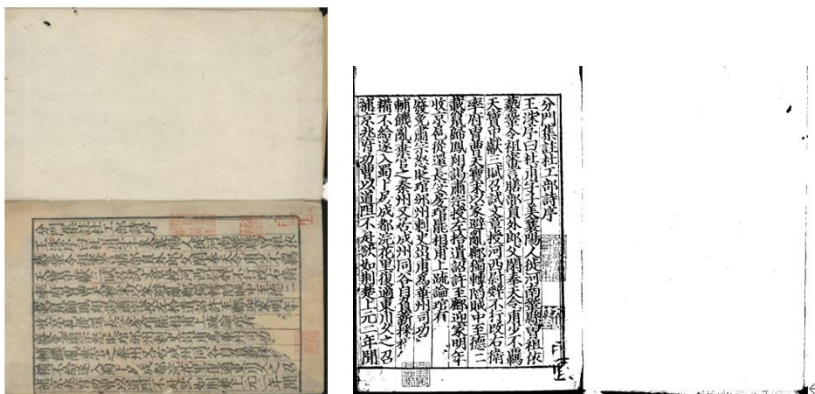 分門集註杜工部詩序
王洙序曰杜甫字子美襄陽人徙河南鞏縣曾祖依
藝鞏令祖審言膳部員外郎父閑奉天令甫少不羈
天寶中獻三賦召試文章授河西尉辭不行改右衛
率府胄曹天寶末以家避亂鄜獨轉陷賊中至德二
載竄歸鳳翔謁肅宗授左拾遺詔許至鄜迎家明年
收京扈從還長安房琯罷相甫上疏論琯有
廢免肅宗怒貶琯邠州刺史出甫為華州司功
輔饑亂棄官之秦州又居成州同谷自負薪採
糒不給遂入蜀卜居成都浣花里復適東川久之召
補京兆府功曹以道阻不赴欲如荊楚上元二年聞